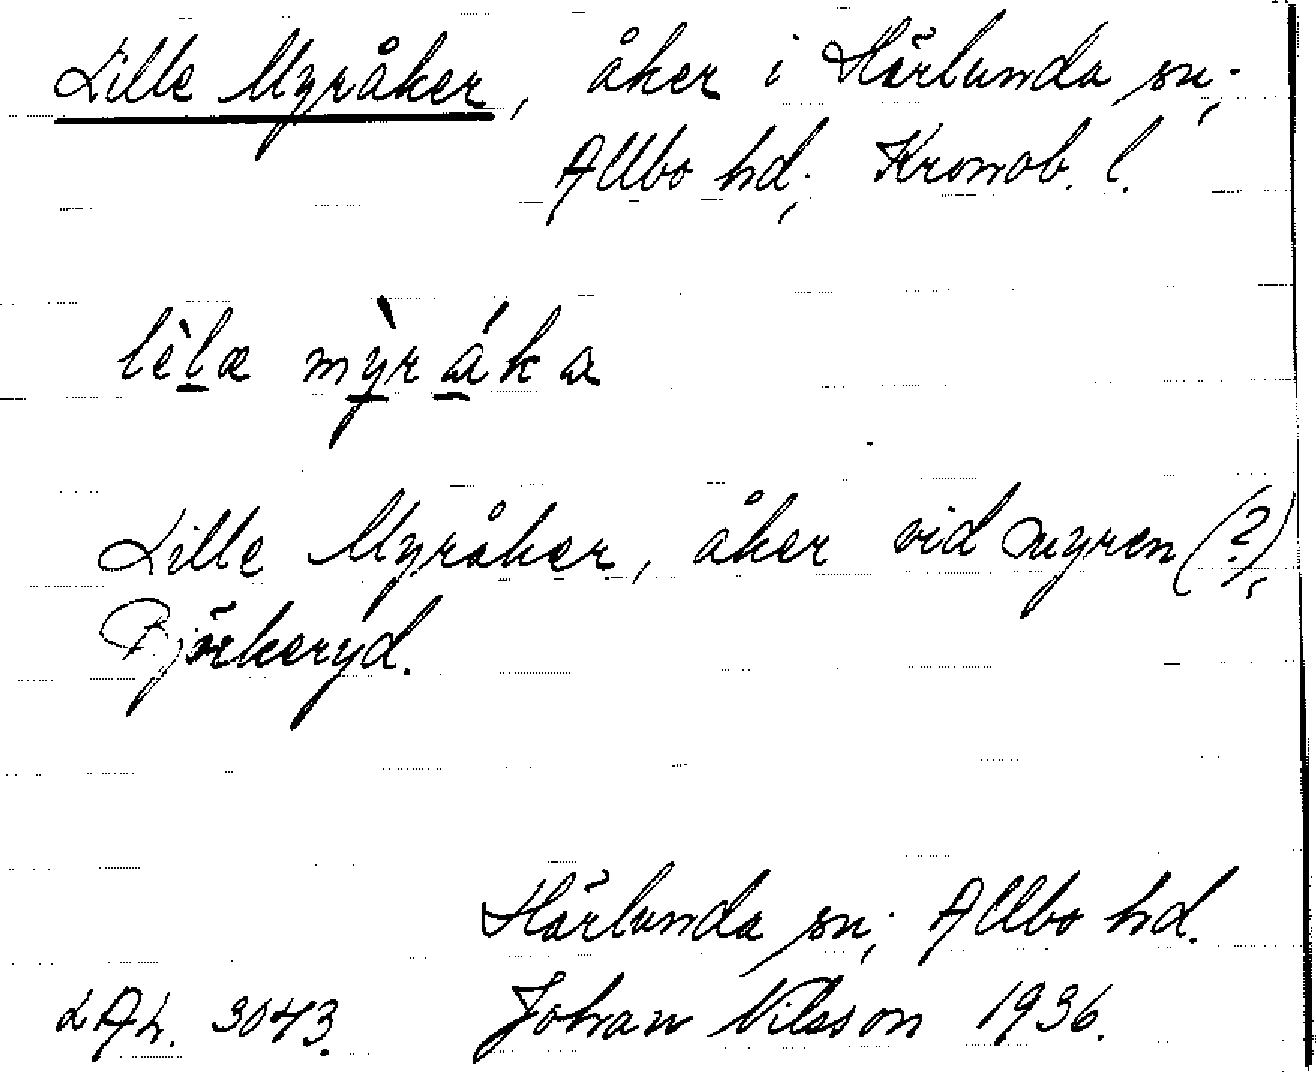 Lille Myråker, åker i Härlunda sn.,
Allbo hd., Kronob. l.
lèlæ mỳráka
Lille Myråker, åker vid myren (?),
Björkeryd.
Härlunda sn., Allbo hd.
LAL. 3043. Johan Nilsson 1936.